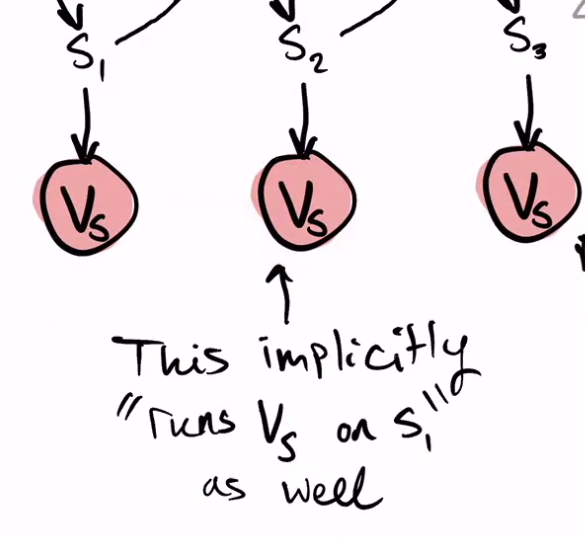 S₁ S₂ S₃
Vs Vs Vs
This implicitly
"runs Vs on S₁"
as well